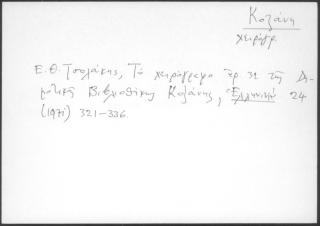 Κοζάνη
χειρόγρ.
Ε. Θ. Τσολάκης, Τὸ χειρόγραφο ἀρ. 31 τῆς Δη-
μοτικῆς Βιβλιοθήκης Κοζάνης, Ἑλληνικά 24
(1971) 321-336.